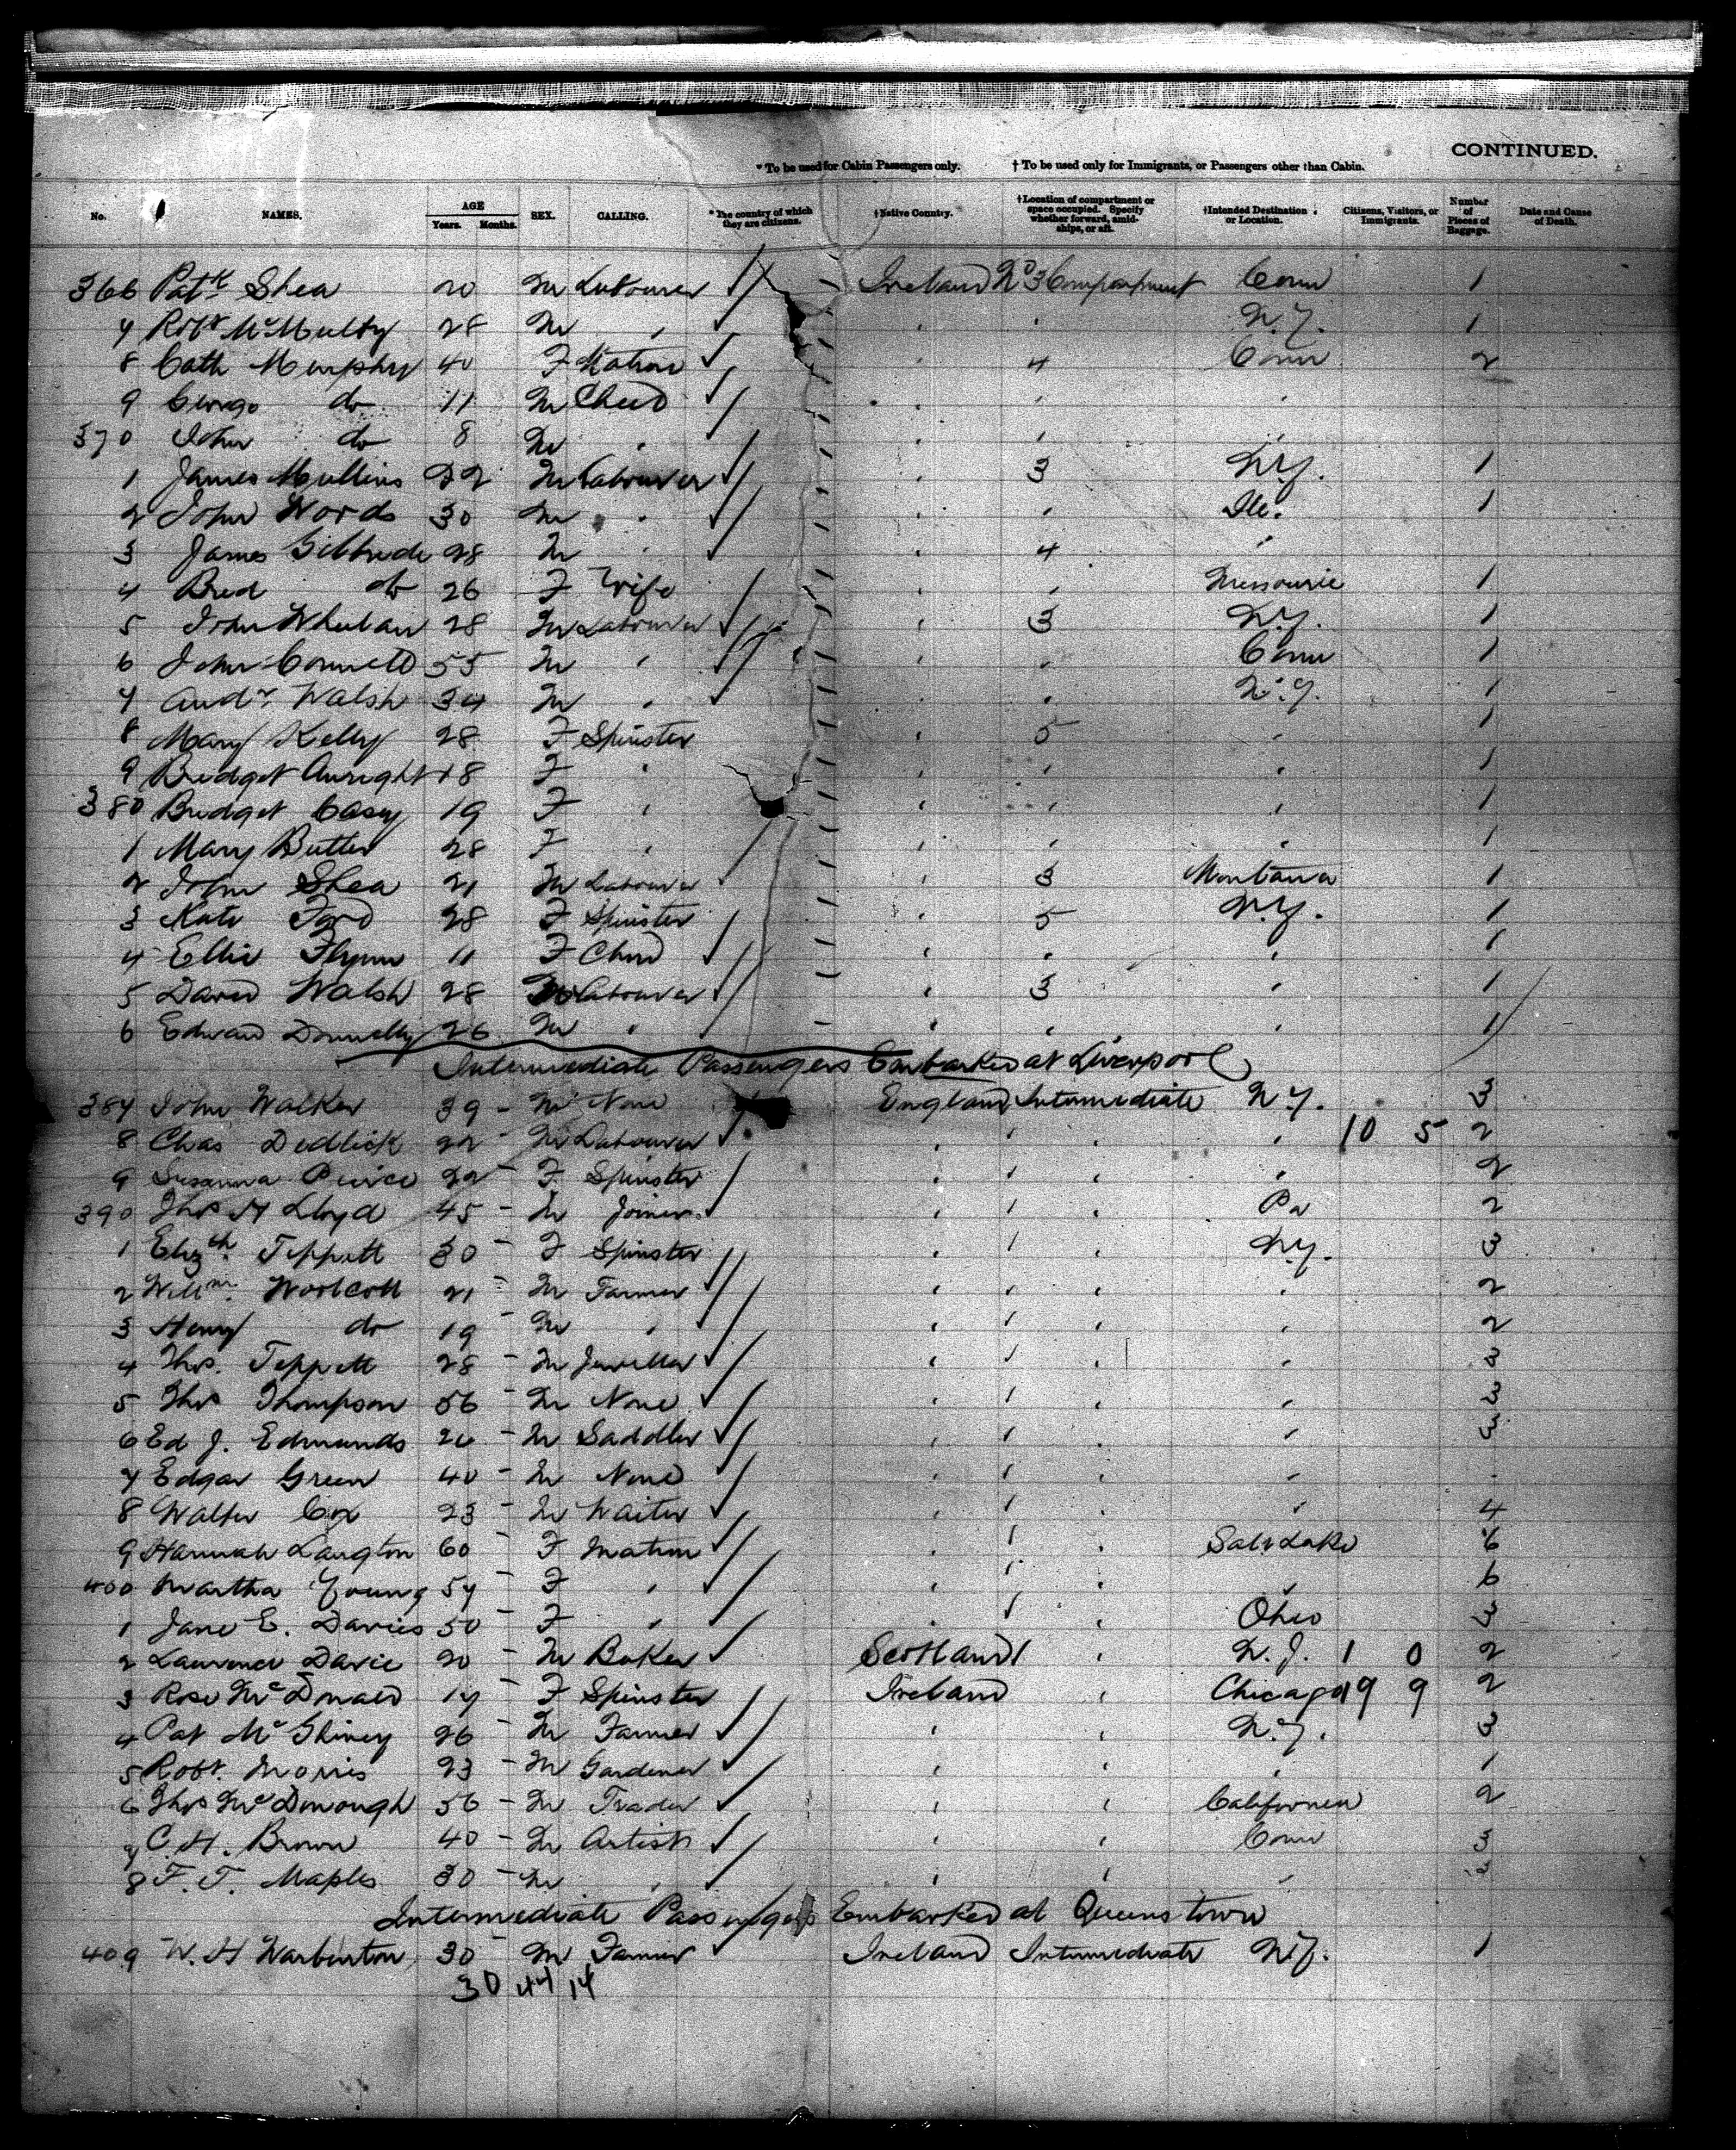 CONTINUED.
* To be used for Cabin Passengers only. † To be used only for Immigrants, or Passengers other than Cabin.
No. NAMES. AGE Years. Months. SEX. CALLING. * The country of which they are citizens. † Native Country. † Location of compartment or space occupied. Specify whether forward, amidships, or aft. † Intended Destination or Location. Citizens, Visitors, or Immigrants. Number of Pieces of Baggage. Date and Cause of Death.
366 Patk Shea 20 M Labourer Ireland No 3 Compartment Conn 1
7 Robt McMulty 28 M " " " N.Y. 1
8 Cath Murphy 40 F Matron " 4 Conn 2
9 George do 11 M Child " " "
370 John do 8 M " " " "
1 James Mullins 22 M Labourer " 3 N.Y. 1
2 John Words 30 M " " " Ile. 1
3 James Gilbride 28 M " " 4 "
4 Brid do 26 F Wife " " Missourie 1
5 John Whelan 28 M Labourer " 3 N.Y. 1
6 John Connell 55 M " " " Conn 1
7 Andr Walsh 34 M " " " N.Y. 1
8 Mary Kelly 28 F Spinster " 5 " 1
9 Bridget Anright 18 F " " " " 1
380 Bridget Casey 19 F " " " " 1
1 Mary Butler 28 F " " " " 1
2 John Shea 21 M Labourer " 3 Montana 1
3 Kate Ford 28 F Spinster " 5 N.Y. 1
4 Ellie Flynn 11 F Child " " " 1
5 David Walsh 28 M Labourer " 3 " 1
6 Edward Donnelly 26 M " " " " 1
Intermediate Passengers Embarked at Liverpool
387 John Walker 39 - M None England Intermediate N.Y. 3
8 Chas Dedlick 22 - M Labourer " " " " 10 5 2
9 Susanna Peirce 22 - F Spinster " " " " 2
390 Thos H Lloyd 45 - M Joiner " " " Pa 2
1 Elizth Teppett 30 - F Spinster " " N.Y. 3
2 Willm. Woolcott 21 - M Farmer " " " " 2
3 Henry do 19 - M " " " " " 2
4 Thos. Teppett 28 - M Jeweller " " " " 3
5 Thos Thompson 56 - M None " " " " 3
6 Ed J. Edmunds 26 - M Saddler " " " " 3
7 Edgar Green 40 - M None " " " " "
8 Walter Cox 23 - M Waiter " " " " 4
9 Hannah Langton 60 - F Matron " " " Salt Lake 6
400 Martha Young 57 - F " " " " " 6
1 Jane E. Davies 50 - F " " " " Ohio 3
2 Laurence Davie 20 - M Baker Scotland " " N.J. 1 0 2
3 Rose McDonald 17 F Spinster Ireland " Chicago 19 9 2
4 Pat McGliney 26 - M Farmer " " N.Y. 3
5 Robt. Morris 23 - M Gardener " " " 1
6 Thos McDonough 56 - M Trader " " Californea 2
7 C. H. Brown 40 - M Artist " " Conn 3
8 F. T. Maples 30 - M " " " " 3
Intermediate Passengers Embarked at Queenstown
409 W. H Warburton 30 - M Farmer Ireland Intermediate N.Y. 1
30 44 14